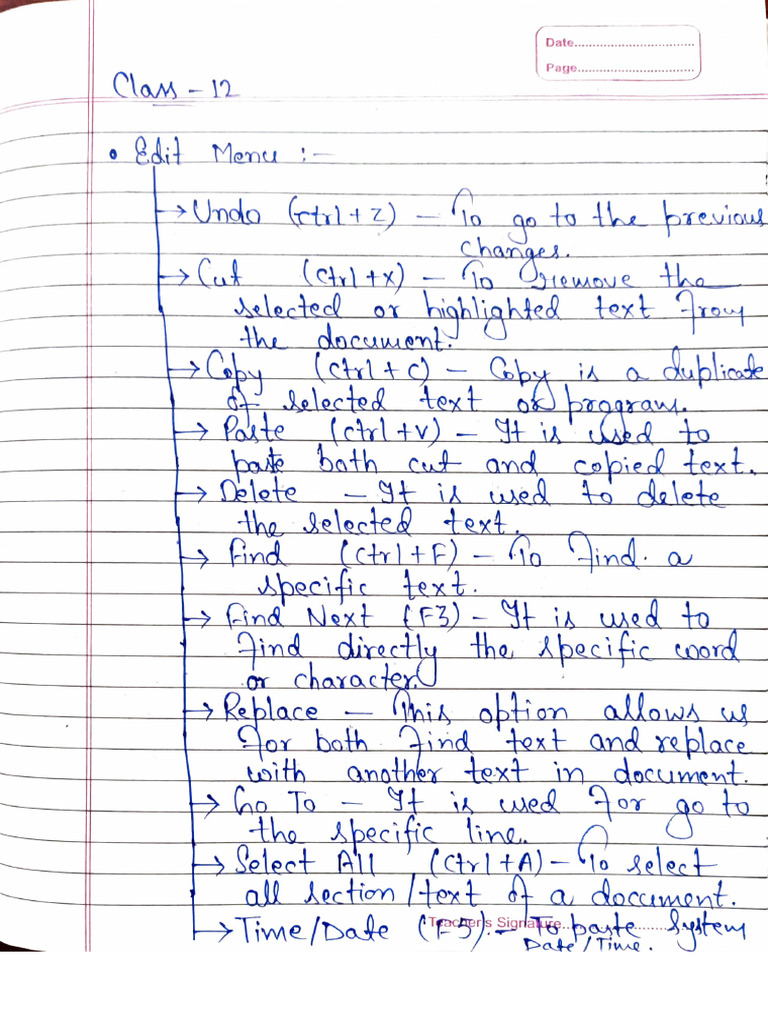 Date..................................
Page..................................
Class - 12
• Edit Menu :-
→ Undo (ctrl+Z) - To go to the previous
changes.
→ Cut (ctrl+X) - To remove the
selected or highlighted text from
the document.
→ Copy (ctrl+C) - Copy is a duplicate
of selected text or program.
→ Paste (ctrl+V) - It is used to
paste both cut and copied text.
→ Delete - It is used to delete
the selected text.
→ Find (ctrl+F) - To find a
specific text.
→ Find Next (F3) - It is used to
find directly the specific word
or character.
→ Replace - This option allows us
for both find text and replace
with another text in document.
→ Go To - It is used for go to
the specific line.
→ Select All (ctrl+A) - To select
all section/text of a document.
Teacher's Signature..................
→ Time/Date (F5) - To paste System
Date/Time.